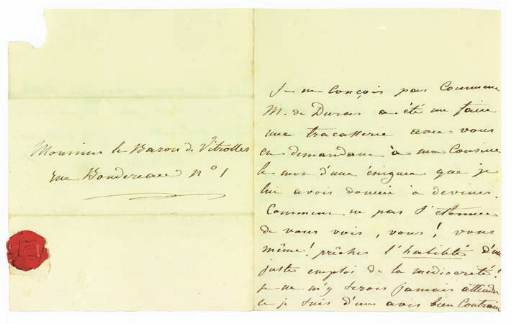 Monsieur le Baron de Vitrolles
rue Boudereau n° 1
Je ne conçois pas comment
M. de Duras a été me faire
une tracasserie avec vous
en demandant à ma Cousine
le mot d'une énigme que je
lui avois donnée à deviner.
Comment ne pas s'étonner
de vous voir, vous! vous
même! prêcher l'habileté d'un
juste emploi de la médiocrité!
je ne m'y serois jamais attendu
et je suis d'un avis bien contraire